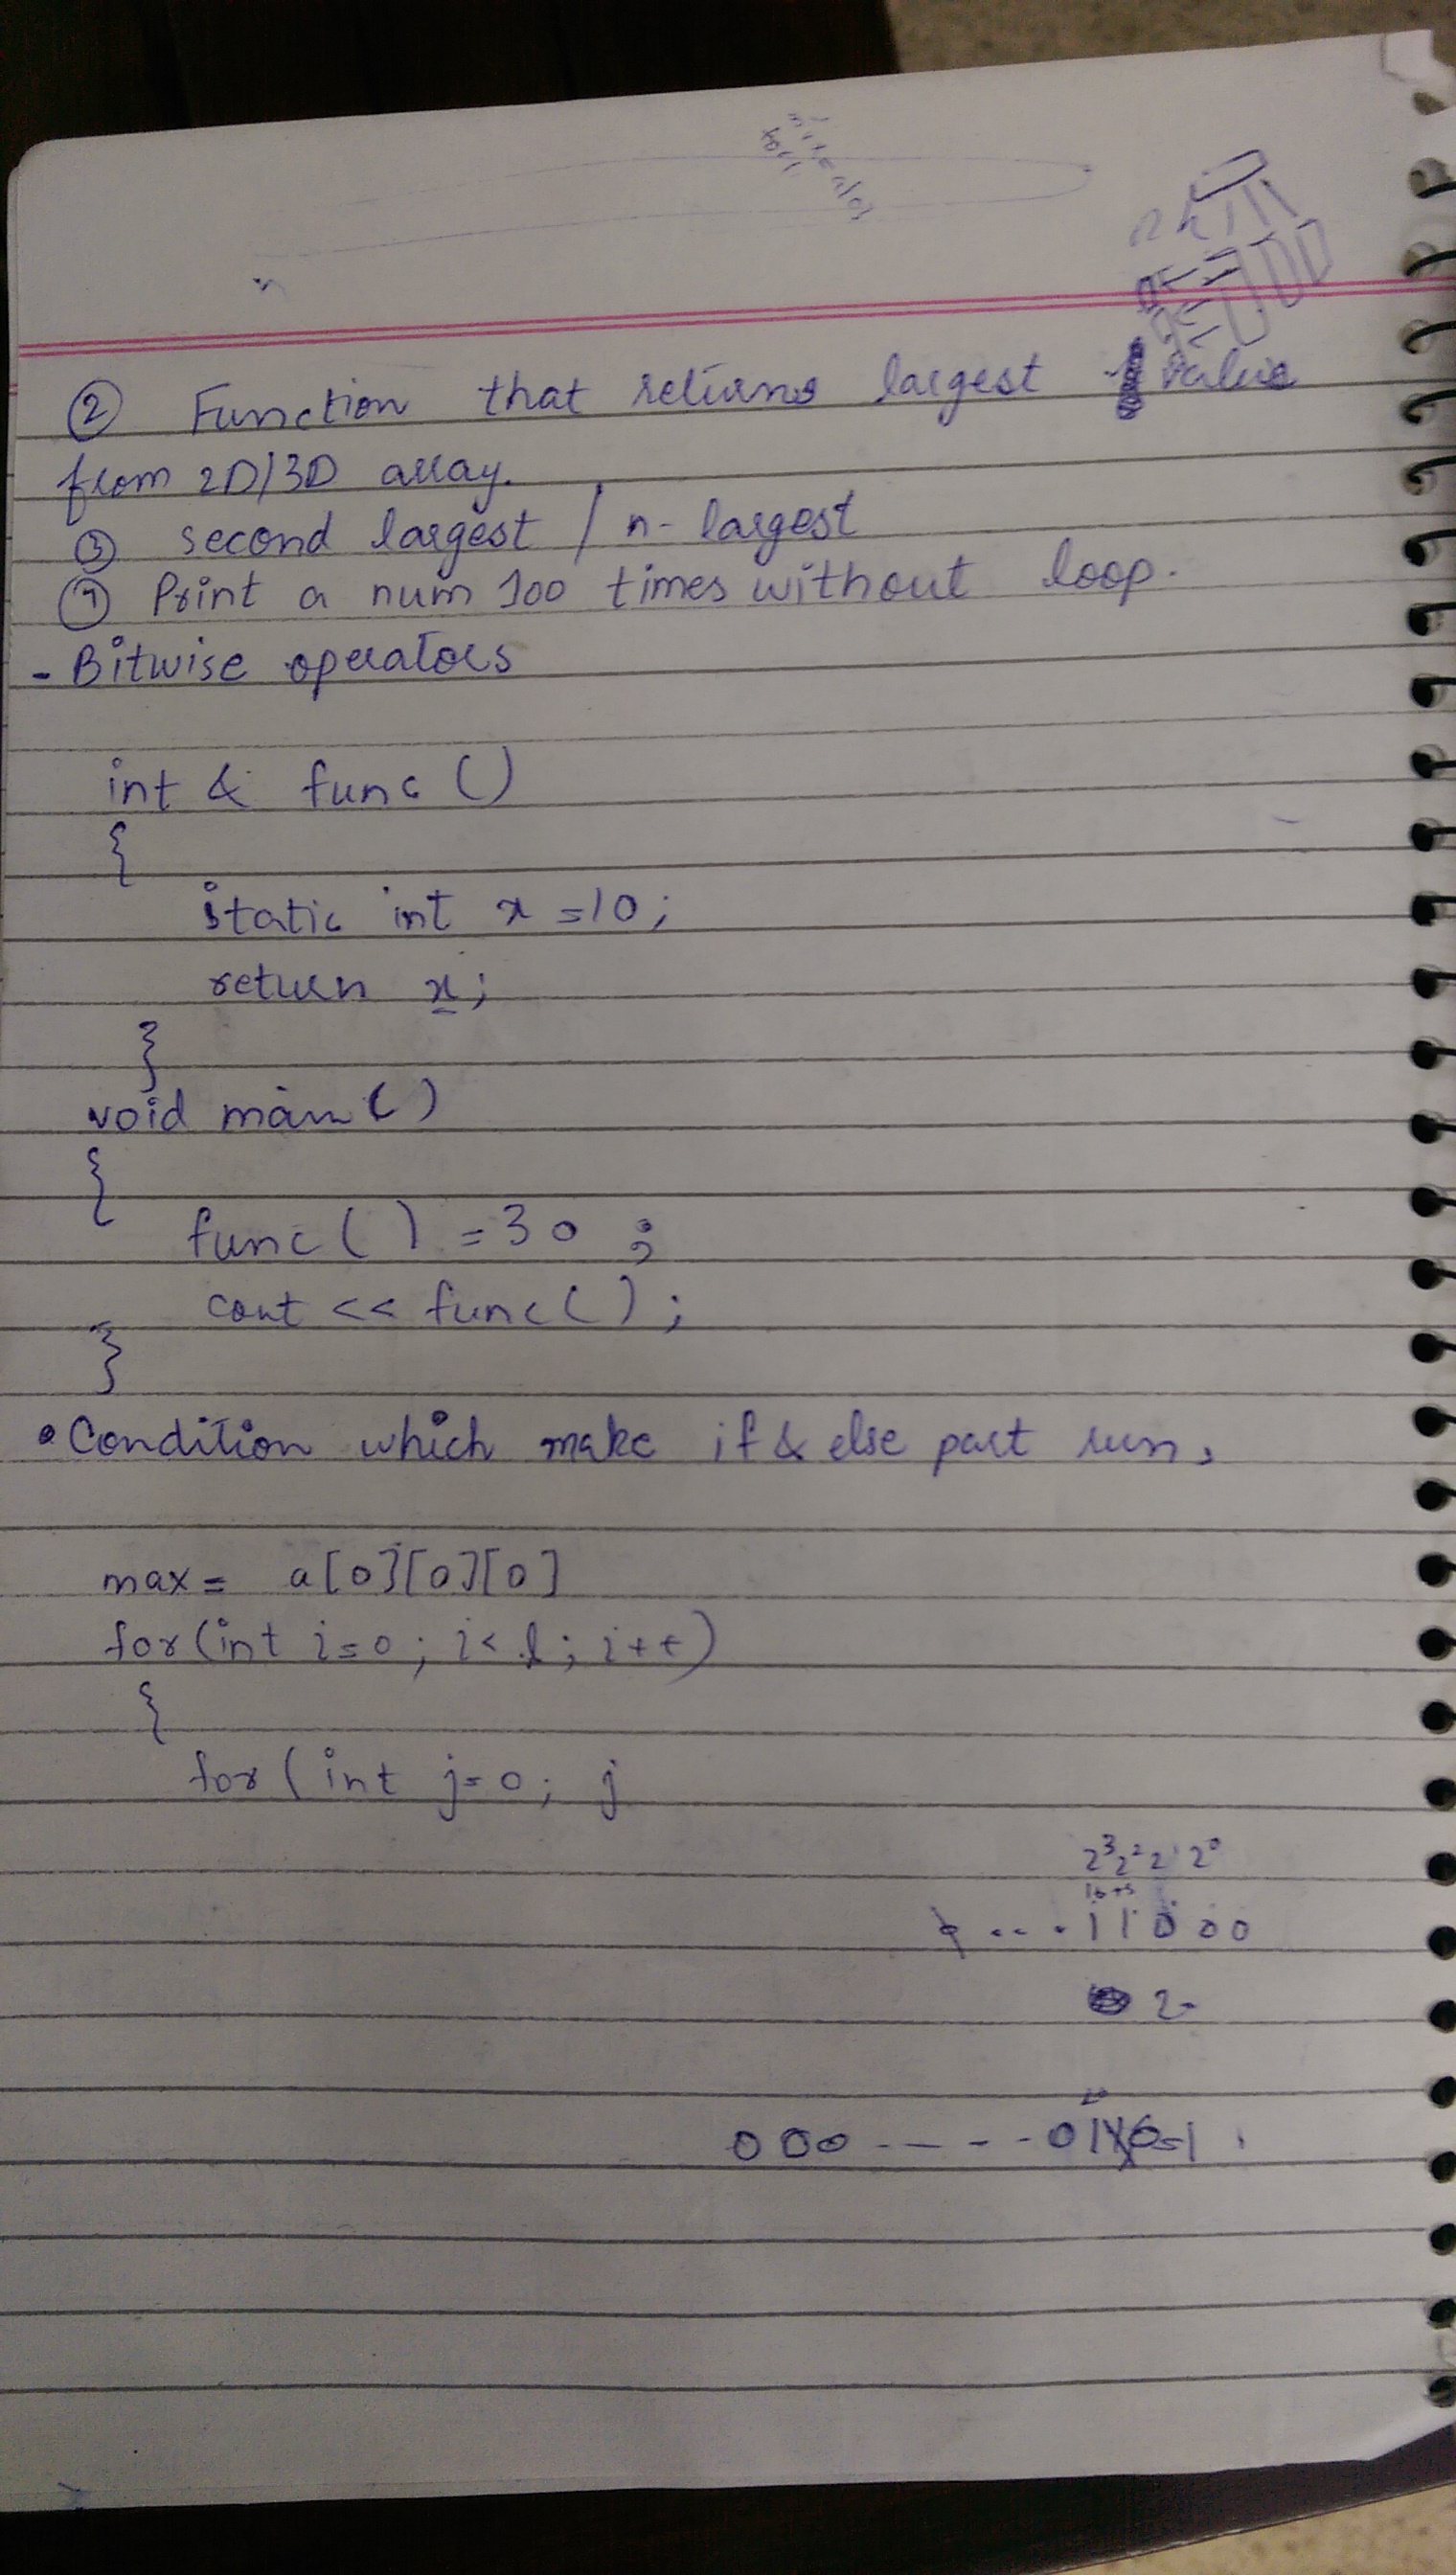 ② Function that returns largest value
from 2D/3D array.
③ second largest / n-largest
④ Print a num 100 times without loop.
- Bitwise operators
int & func ()
{
static int x =10;
return x;
}
void main ()
{
func () = 30 ;
cout << func () ;
}
• Condition which make if & else part run,
max = a[0][0][0]
for (int i=0 ; i< l ; i++)
{
for ( int j=0 ; j
2³ 2² 2¹ 2⁰
1 1 0 0 0
2-
0 0 0 - - - - - 0 1